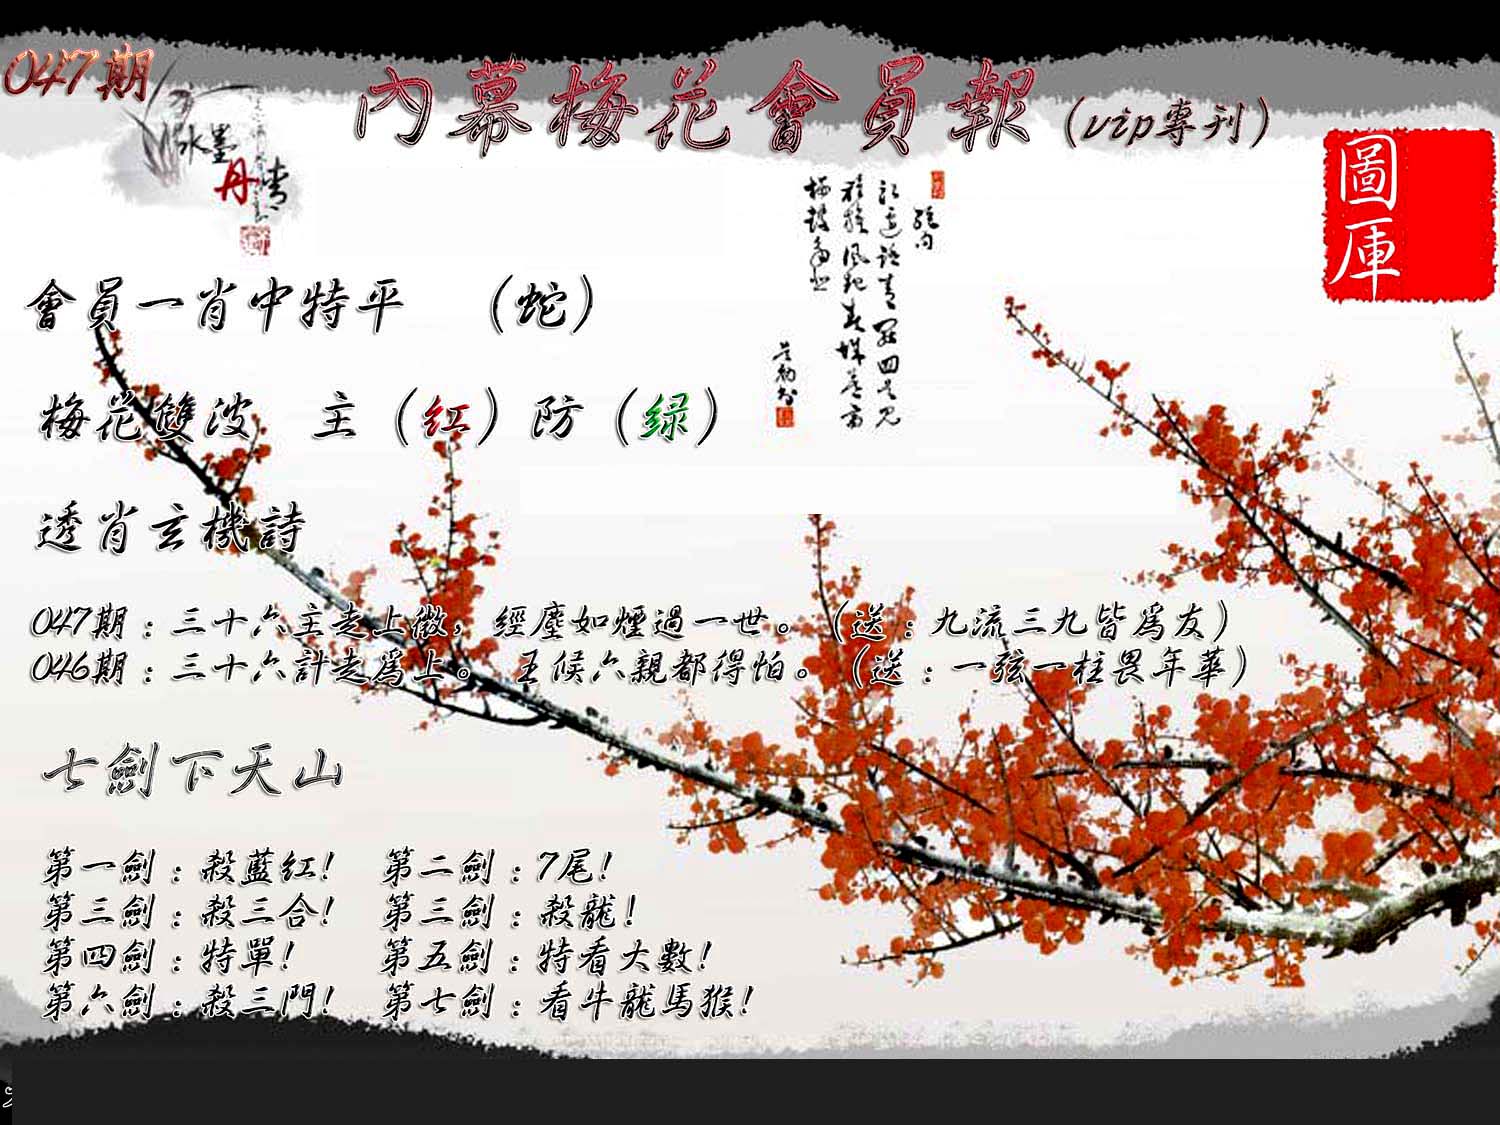 047期
內幕梅花會員報（vip專刊）
水墨
丹青
圖庫
會員一肖中特平 （蛇）
梅花雙波 主（红）防（绿）
透肖玄機詩
047期：三十六主走上徵，經塵如煙過一世。（送：九流三九皆為友）
046期：三十六計走為上。 王候六親都得怕。（送：一弦一柱畏年華）
七劍下天山
第一劍：殺藍紅！ 第二劍：7尾！
第三劍：殺三合！ 第三劍：殺龍！
第四劍：特單！ 第五劍：特看大數！
第六劍：殺三門！ 第七劍：看牛龍馬猴！